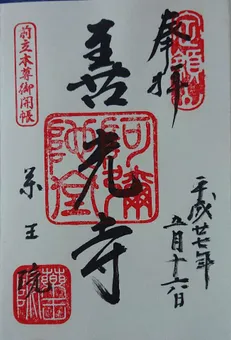 奉拝
平成廿七年
五月十六日
善光寺
前立本尊御開帳
薬王院